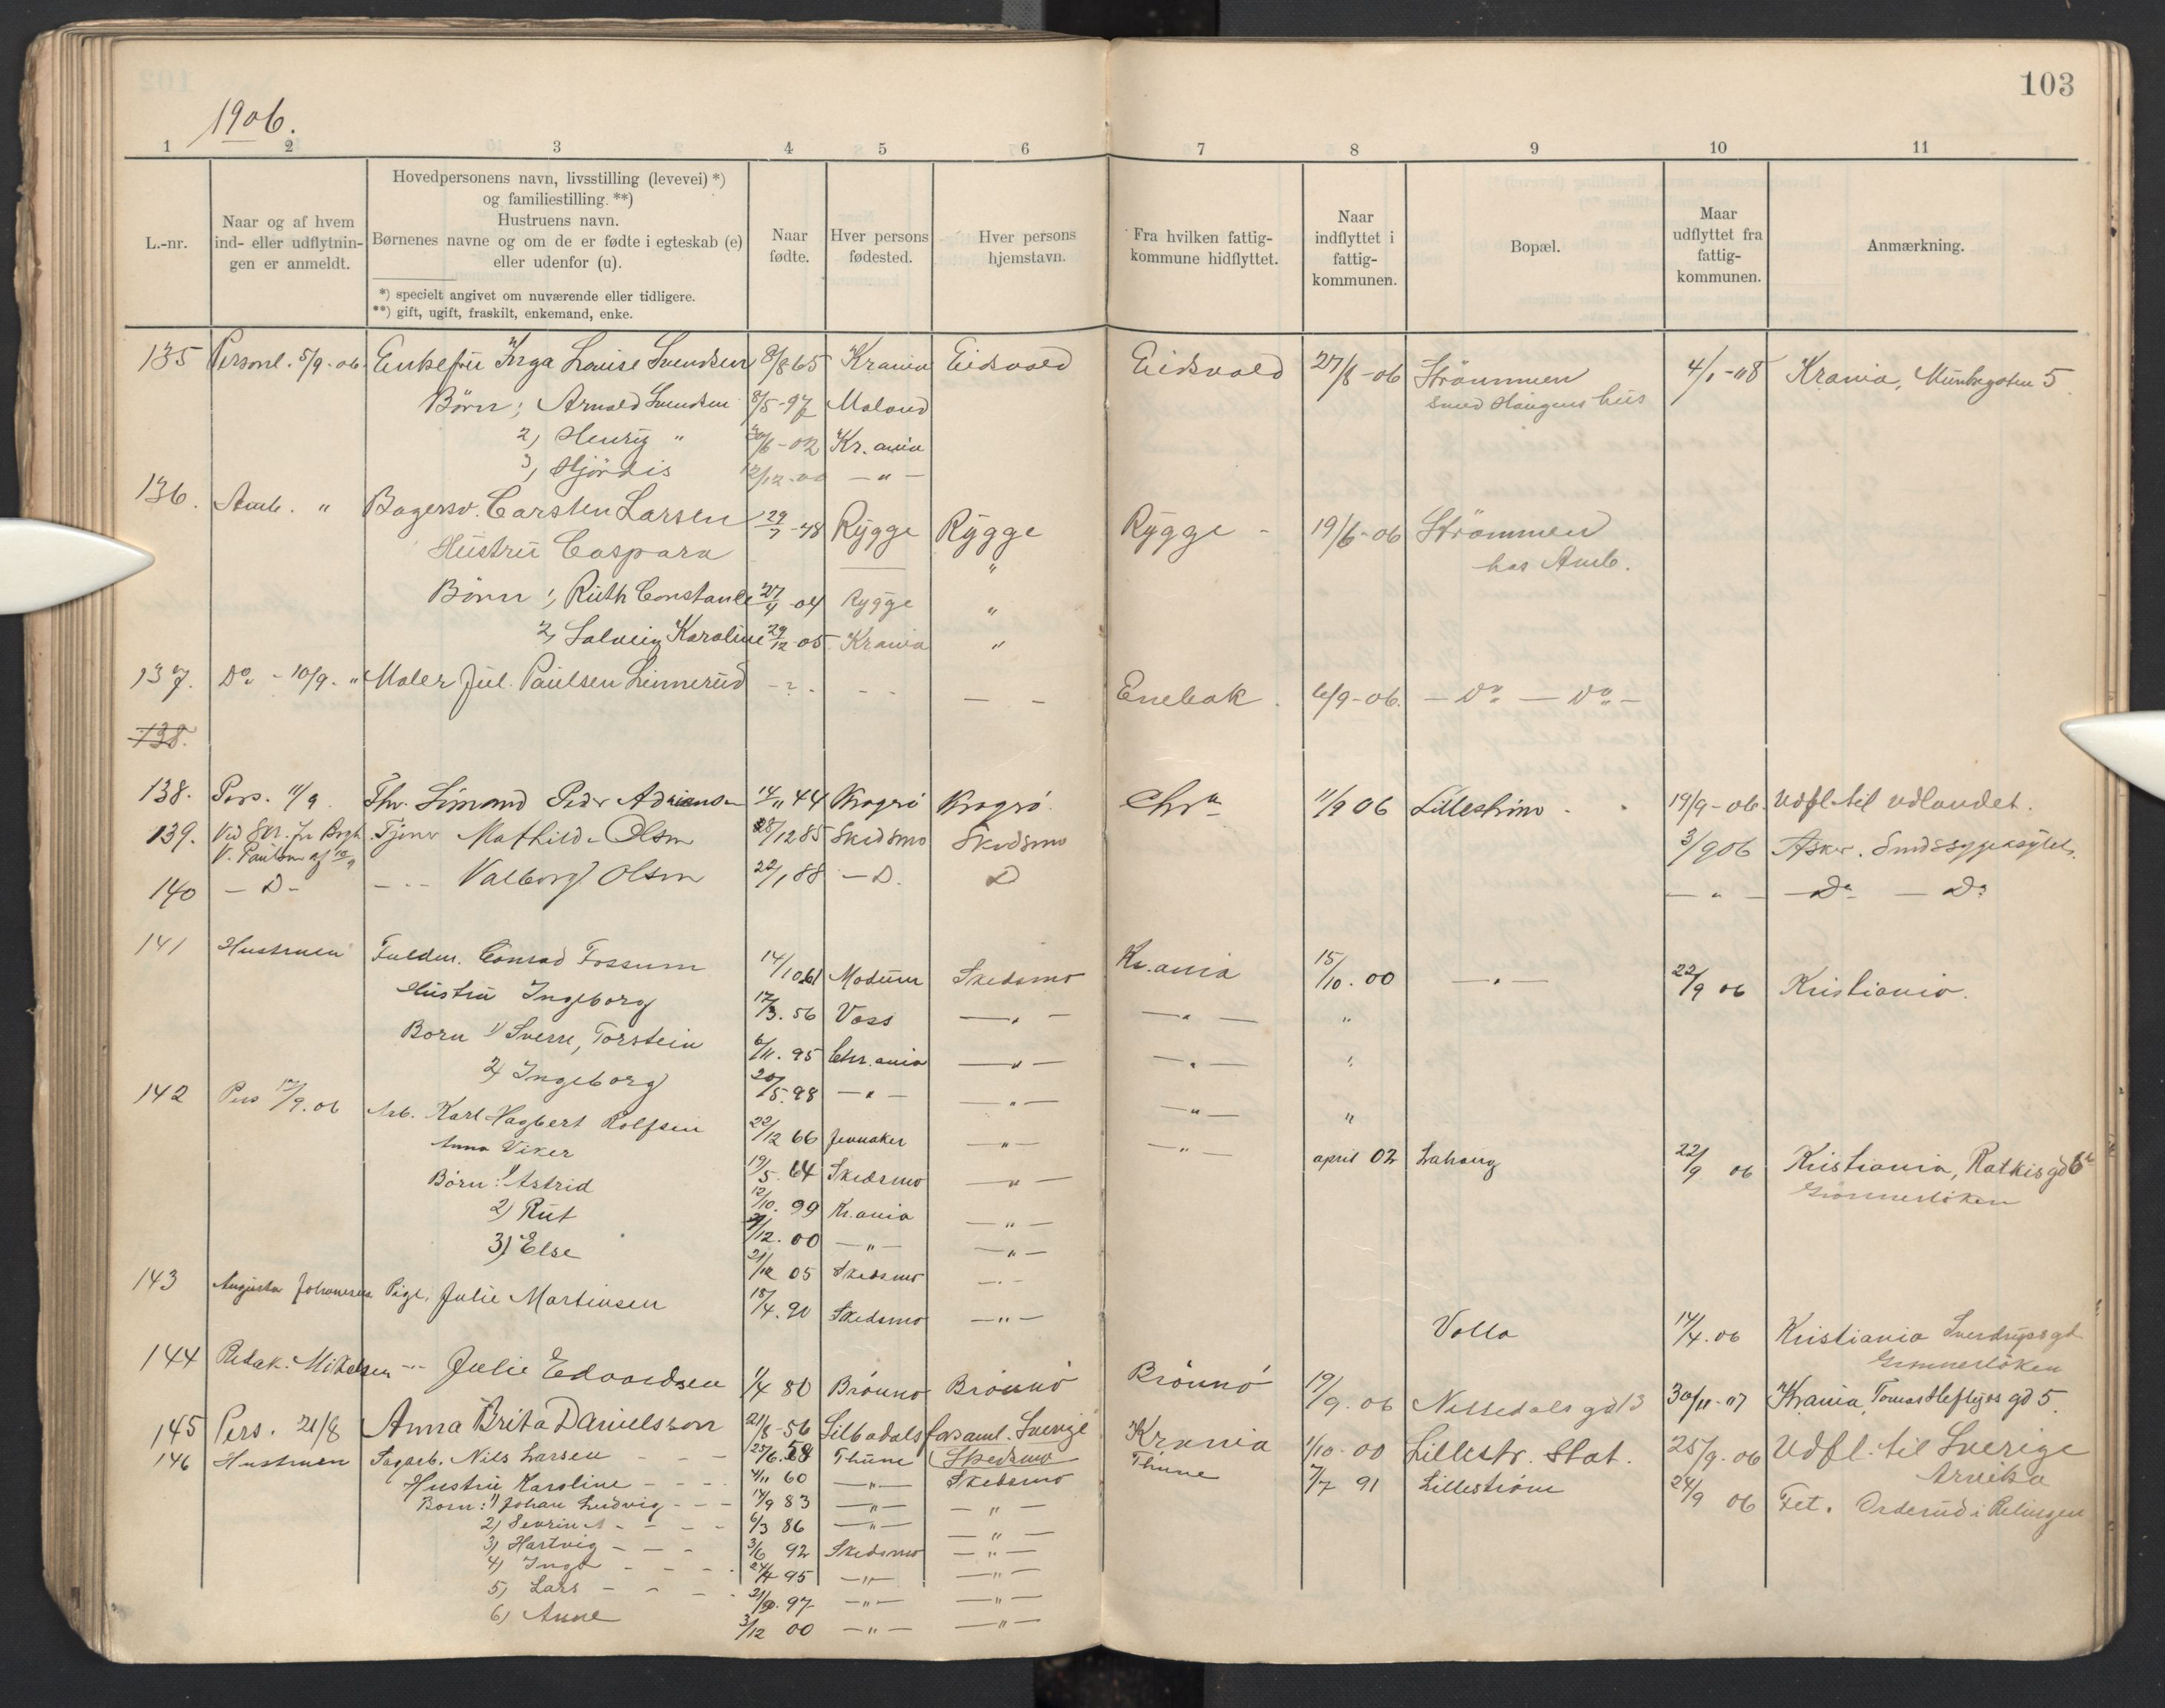 103
1906.
1 2 3 4 5 6 7 8 9 10 11
L.-nr.
Naar og af hvem
ind- eller udflytnin-
gen er anmeldt.
Hovedpersonens navn, livsstilling (levevei) *)
og familiestilling. **)
Hustruens navn.
Børnenes navne og om de er fødte i egteskab (e)
eller udenfor (u).
*) specielt angivet om nuværende eller tidligere.
**) gift, ugift, fraskilt, enkemand, enke.
Naar
fødte.
Hver persons
fødested.
Hver persons
hjemstavn.
Fra hvilken fattig-
kommune hidflyttet.
Naar
indflyttet i
fattig-
kommunen.
Bopæl.
Maar
udflyttet fra
fattig-
kommunen.
Anmærkning.
135 Personl. 5/9-06. Enkefru Inga Louise Svendsen 8/8 65 Krania Eidsvold Eidsvold 27/8-06 Strømmen 4/1-08 Krania, Munkegaten 5
Børn 1, Arnold Svendsen 8/5-97 Moland hus
2, Henrÿ " 30/6-02 Kr.ania
3, Hjördis 12/12-00 — " —
136. Amb. " Bagersv. Carsten Larsen 29/7-48 Rÿgge Rÿgge Rÿgge - 19/6-06 Strömmen
Hustru Caspara — " hos Amb.
Børn 1, Ruth Constance 27/4-04 Rÿgge "
2, Solveig Karoline 29/12-05 Krania "
137. Do - 10/9-" Maler Jul. Paulsen Linnerud - ? - - - — - Enebak. 6/9-06. — Do — Do —
138.
138. Pers. 11/9. Peder Adriansen 14/11 44 Kragrö Kragrö. Chra 11/9 06 Lillestrøm - 19/9-06. Udfl. til udlandet.
139. Tjener Mathilde Olsen 28/12 85 Skedsmo Skedsmo 3/9 06 Asker. Sindssygeasylet.
V. Paulsen af 10/9
140 — D — — -- Valborg Olsen 22/1 88 — D. D — " — — Do — Do
141 Hustruen Fuldm. Conrad Fossum 14/10 61 Modum Skedsmo Kr.ania 15/10. 00 — " — 22/9 06 Kristiania.
Hustru Ingeborg 12/3. 56 Voss — " — — " — "
Born 1) Sverre, Torstein 6/11. 95 Chr.ania — " — — " — "
2) Ingeborg 20/5. 98 — " — — " — — " — "
142 Pers 12/9. 06 Arb. Karl Hagbert Rolfsen 22/12 66 Jevnaker — " — — " — april 02 Lahaug 22/9 06 Kristiania,
Anna Viker 19/5. 64 Skedsmo — " — Grünnerløken
Børn: 1 Astrid 12/10. 99 Kr.ania — " —
2) Rut /12. 00 — " — — " —
3) Else 21/12 05 Skedsmo — " —
143 Augusta Johannesen Pige, Julie Martinsen 18/4. 90 Skedsmo — " — Volla 14/4. 06 Kristiania Sverdrupsgd
Grünnerløken
144 Redak. Mikelsen -- Julie Edvardsen 1/4 80 Brönnö Brönnö Brönnö 19/9. 06 Nittedalsgd 13 30/11-07 Krania, Tomas Heftyes gd 5.
145 Pers. 21/8 Anna Brita Danielsson 21/8-56 Silbodals forsaml. Sverige Krania 1/10-00 Lillestr. Stat. 25/9-06 Udfl. til Sverige
Arvika
146 Hustruen Sagarb. Nils Larsen - - - 25/6. 58 Thune Skedsmo Thune 7/7 91 Lillestrøm 24/9 06 Fet. Orderud i Relingen
Hustru Karoline - - - 4/11 60 — " — Skedsmo
Born: 1) Johan Ludvig - - - 14/9 83 — " — — " —
2) Sevrin - - - 6/3 86 — " — — " —
3) Hartvig - - - 3/6 92 Skedsmo — " —
4) Inga - - - 24/4 95 — " — — " —
5) Lars - - - 21/ 97 — " — — " —
6) Anne 3/12 00 — " — — " —